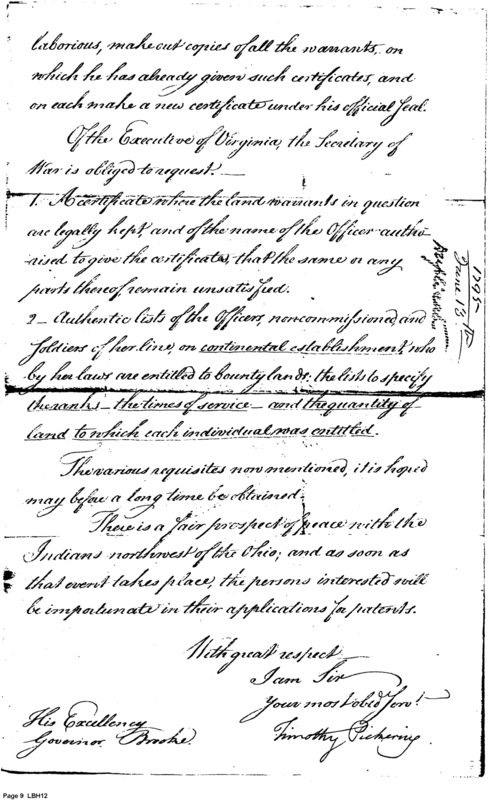 laborious, make out copies of all the warrants, on
which he has already given such certificates, and
on each make a new certificate under his official Seal.
Of the Executive of Virginia, the Secretary of
War is obliged to request. —
1. A certificate where the land warrants in question
are legally kept, and of the name of the Officer autho-
rised to give the certificate, that the same or any
parts thereof, remain unsatisfied.
2 — Authentic lists of the Officers, noncommissioned, and
Soldiers of her line, on continental establishment, who
by her laws are entitled to bounty lands: the lists to specify
the ranks — the times of service — and the quantity of
land to which each individual was entitled.
The various requisites now mentioned, it is hoped
may before a long time be obtained.
There is a fair prospect of peace with the
Indians northwest of the Ohio; and as soon as
that event takes place, the persons interested will
be importunate in their applications for patents.
With great respect
I am Sir
Your most obed. serv.t
Timothy Pickering.
His Excellency
Governor Brooke.
1795
June 13.th
Page 9 LBH12